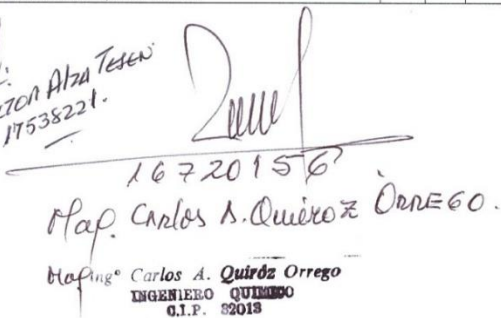 Alza Tesen
17538221.
16720156
Mag. Carlos A. Quiéroz Orrego.
Mag ingº Carlos A. Quiróz Orrego
INGENIERO QUIMICO
C.I.P. 82013